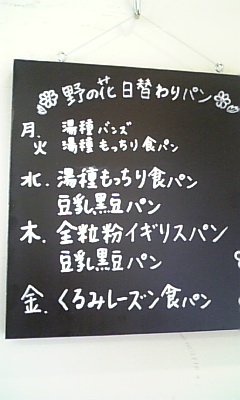 野の花日替わりパン
月. 湯種バンズ
火 湯種もっちり食パン
水. 湯種もっちり食パン
豆乳黒豆パン
木. 全粒粉イギリスパン
豆乳黒豆パン
金. くるみレーズン食パン